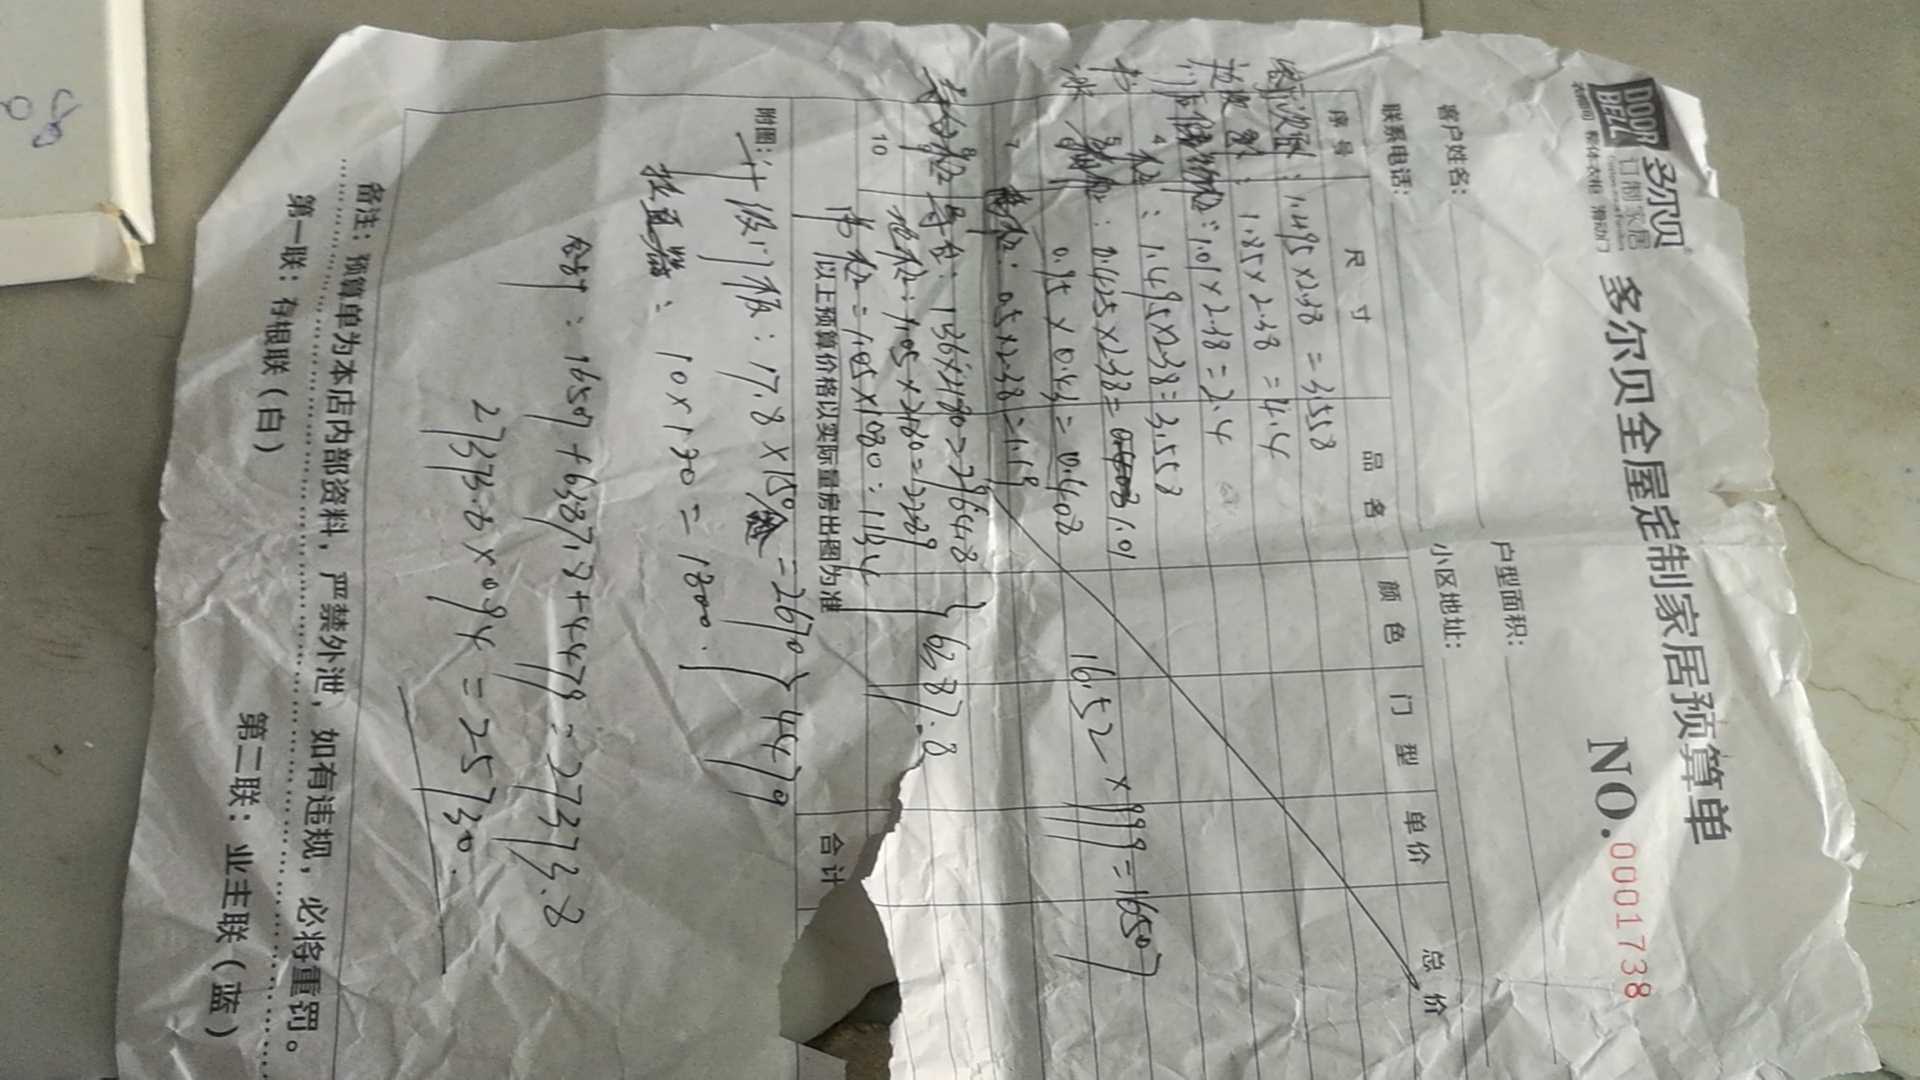 DOOR BEZZ 多尔贝 订制家居
衣帽间 整体衣柜 滑动门
多尔贝全屋定制家居预算单
NO.0001738
客户姓名:
户型面积:
联系电话:
小区地址:
序号 尺寸 品名 颜色 门型 单价 总价
: 1.495×2.38=3.558
: 1.85×2.38=4.4
: 1.01×2.38=2.4
4 柜: 1.495×2.38=3.558
5 : 0.425×2.38= 1.01
6 0.95×0.43=0.408
16.52×999=16507
7 : 0.5×2.38=1.19
8
10
地柜: 1.05×2180=2289
吊柜=1.05×1080=1134
6387.8
以上预算价格以实际量房出图为准
合计
附图:
升级门板: 17.8×150 =2670
拉直器: 10×180=1800.
4479
合计: 16507+6387.8+4479=27373.8
27373.8×0.94=25730.
备注:预算单为本店内部资料,严禁外泄,如有违规,必将重罚。
第一联:存根联(白) 第二联:业主联(蓝)